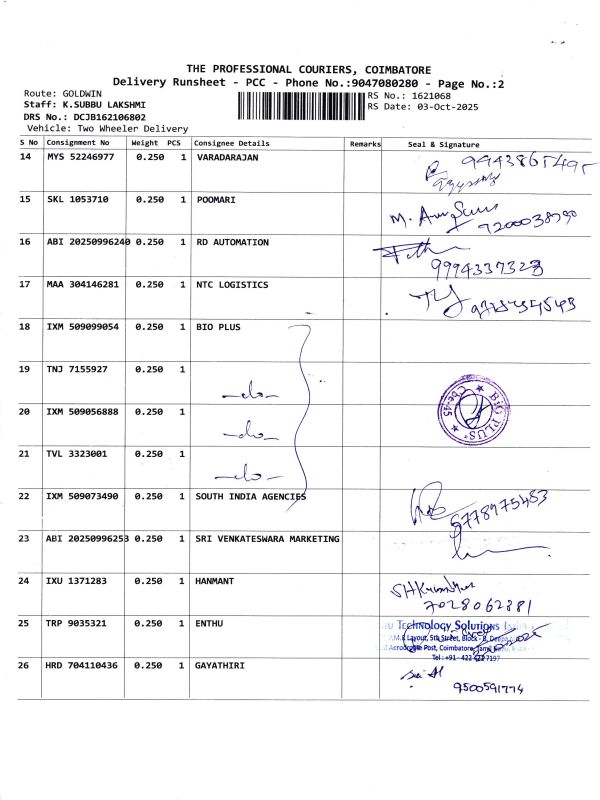 THE PROFESSIONAL COURIERS, COIMBATORE
Delivery Runsheet - PCC - Phone No.:9047080280 - Page No.:2
Route: GOLDWIN
Staff: K.SUBBU LAKSHMI
DRS No.: DCJB162106802
Vehicle: Two Wheeler Delivery
RS No.: 1621068
RS Date: 03-Oct-2025
S No Consignment No Weight PCS Consignee Details Remarks Seal & Signature
14 MYS 52246977 0.250 1 VARADARAJAN 9943865495
15 SKL 1053710 0.250 1 POOMARI
7200038790
16 ABI 20250996240 0.250 1 RD AUTOMATION
9994337323
17 MAA 304146281 0.250 1 NTC LOGISTICS
18 IXM 509099054 0.250 1 BIO PLUS
19 TNJ 7155927 0.250 1 -do-
20 IXM 509056888 0.250 1 -do-
BIO PLUS
Cbe-45
21 TVL 3323001 0.250 1 -do-
22 IXM 509073490 0.250 1 SOUTH INDIA AGENCIES
23 ABI 20250996253 0.250 1 SRI VENKATESWARA MARKETING
24 IXU 1371283 0.250 1 HANMANT
7028062881
25 TRP 9035321 0.250 1 ENTHU
Technology Solutions
Layout, 5th Street, Block - B,
Post, Coimbatore, Tamil
Tel : +91 - 422
26 HRD 704110436 0.250 1 GAYATHIRI
9500591774